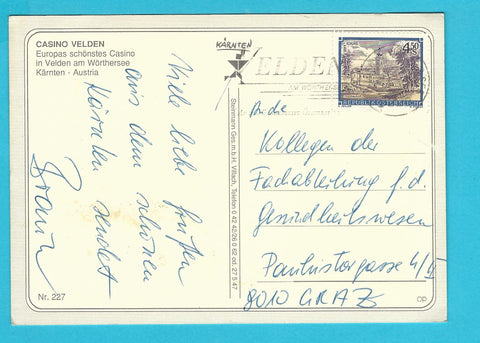 CASINO VELDEN
Europas schönstes Casino
in Velden am Wörthersee
Kärnten · Austria
Viele liebe Grüße
aus dem schönen
Kärnten sendet
Nr. 227
Steinmann Ges.m.b.H. Villach, Telefon 0 42 42/26 0 62 od. 27 5 47
KÄRNTEN
VELDEN
AM WÖRTHERSEE
4.50
REPUBLIK ÖSTERREICH
An die
Kollegen der
Fachabteilung f. d.
Gesundheitswesen
Paulustorgasse 4/II
8010 GRAZ